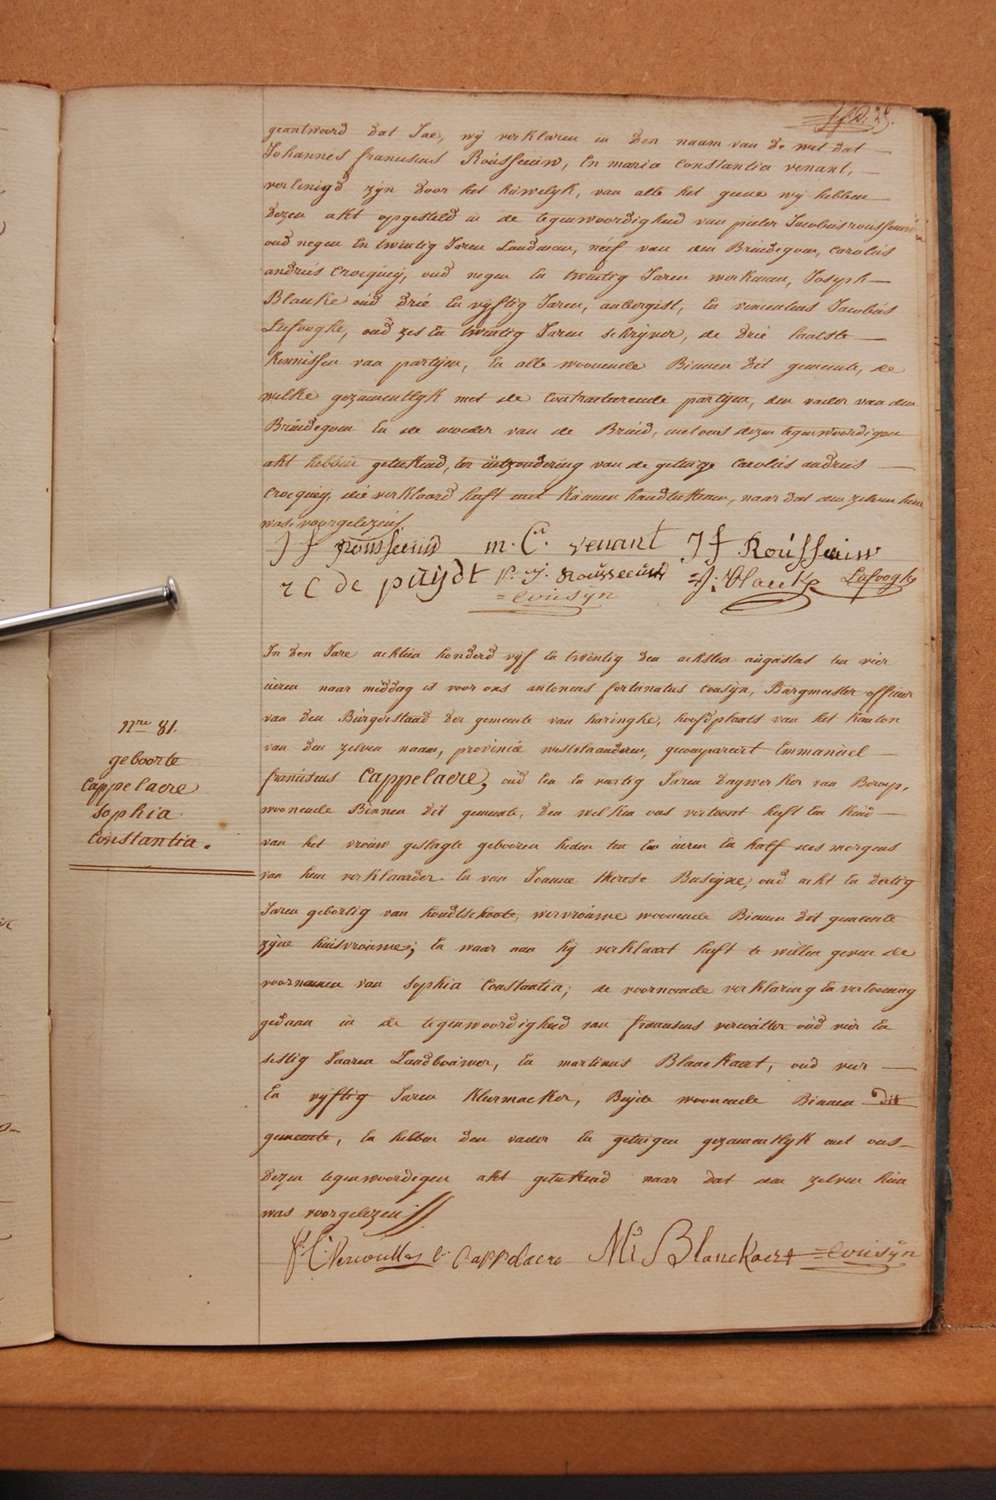 geantwoord dat Jae, wij verklaren in den naam van de wet dat
Johannes franciscus Rousseeuw, En maria Constantia venant,
vereenigd zijn door het huwelijk, van alle het geene wij hebben
dezen akt opgesteld in de tegenwoordigheid van pieter Jacobus rousseeuw
oud negen En twintig Jaren Landman, neef van den Bruidegom, carolus
andries Crocquey, oud negen En twintig Jaren werkman, Joseph
Blanke oud drie En vyftig Jaren, aubergist, En vincentius Jacobus
Lefooghe, oud zes En twintig Jaren schrijver, de drie laatste
kennissen van partijen, En alle woonende Binnen dit gemeente, de
welke gezamentlyk met de Contracteerende partijen, den vader van den
Bruidegom En de moeder van de Bruid, met ons dezen tegenwoordigen
akt hebben geteekend, ter uitzondering van de getuige carolus andries
Crocquey, die verklaard heeft niet kunnen handteekenen, naar dat den zelven hun
was voorgelezen
J f Rousseeuw m. C. venant J f Rousseeuw
r C de puijdt P. J. Rousseeuw J. Blancke Lefooghe
Cousyn
In den Jare achtien honderd vyf En twintig den achsten augustus ten vier
uren naar middag is voor ons antonius fortunatus cousyn, Burgmeester officier
van den Burgerstaad der gemeente van haringhe, hoofdplaats van het kanton
van den zelven naam, provincie westvlaanderen, gecompareert Emmanuel
franciscus Cappelaere, oud Een En veertig Jaren Dagwerker van Beroep,
woonende Binnen dit gemeente, den welken ons vertoont heeft Een kind
van het vrouw geslagte gebooren heden ten Een uren En half des morgens
van hem verklaarder En van Joanna therese Baseyne, oud acht En dertig
Jaren geboortig van hondtschoote, wervrouwe woonende Binnen dit gemeente
zyne huisvrouwe; En waar aan hij verklaart heeft te willen geven de
voornamen van Sophia Constantia; de voornoemde verklaring En vertooning
gedaan in de tegenwoordigheid van franciscus verwulter oud vier En
sestig Jaaren Landbouwer, En martinus Blanckaert, oud vier
En vyftig Jaren kleermacker, Beijde woonende Binnen dit
gemeente, En hebben den vader En getuigen gezamentlyk met ons
dezen tegenwoordigen akt geteekend naar dat den zelven hun
was voorgelezen
Cappelaere Ms Blanckaert Cousyn
Nre 81.
geboorte
Cappelaere
Sophia
Constantia.